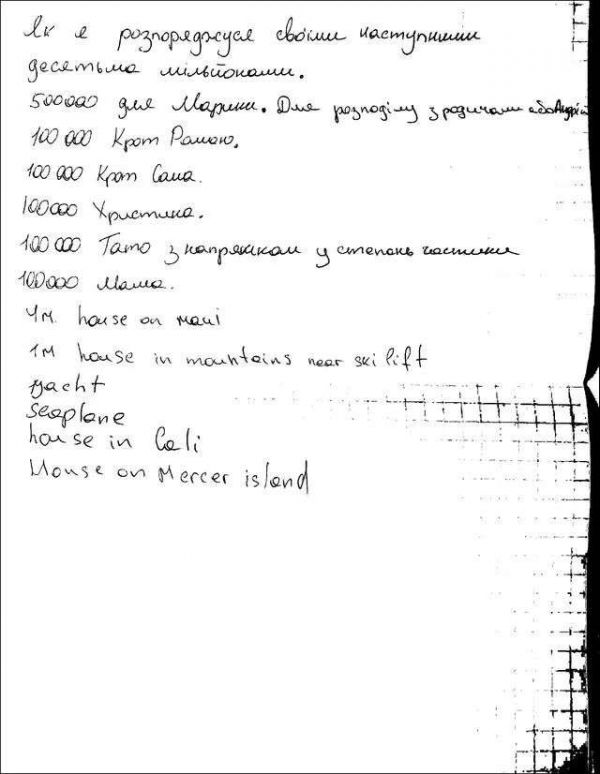 Як я розпоряджуся своїми наступними
десятьма мільйонами.
500000 для Марини. Для розподілу з родичами або Андрій
100 000 Крот Рамаю.
100 000 Крот Саша.
100000 Христина.
100 000 Тато з напрямком у степань частики
100000 Мама.
4м house on maui
1м house in mountains near ski lift
yacht
seaplane
house in Cali
House on Mercer island